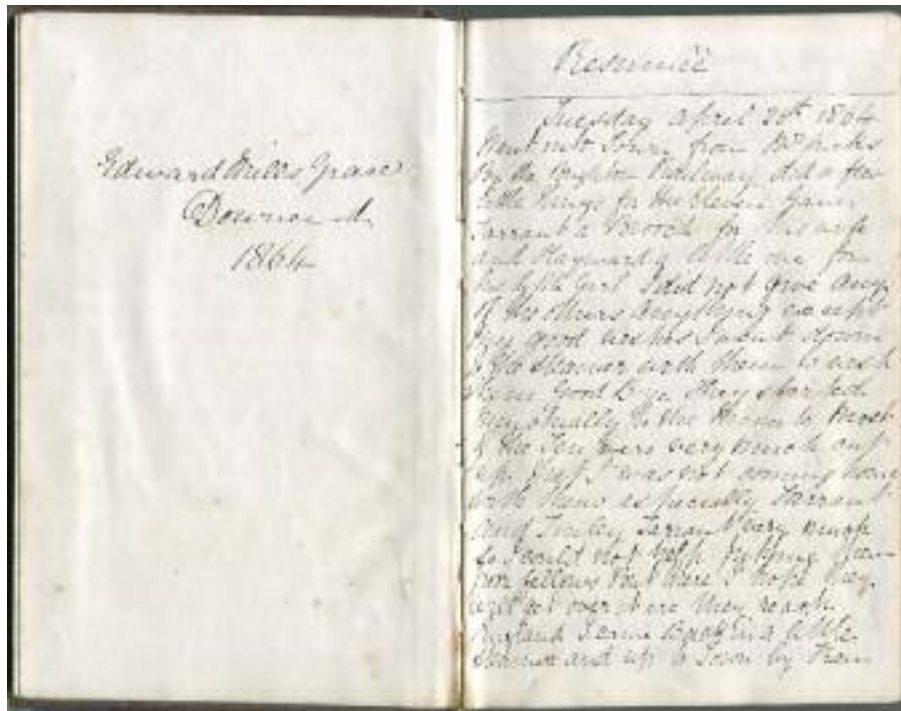 Edward Mills Grace
Downend
1864
Resumée
Tuesday April 26th 1864
Went into Town from
By the Brighton Railway did a few
little things for the eleven gave
Tarrant a Brooch for his wife
and Hayward a little one for
his little Girl I did not give any
of the others anything except
my good wishes I went down
to the steamer with them to wish
them Good Bye they started
punctually to the
of the Ten were very much cut
up that I was not coming home
with them especially Tarrant
and Tinley Tarrant very much
so I could not help pitying them
poor fellows but here I hope they
will get over there they reach
England I came Back in a little
steamer and up to Town by Train